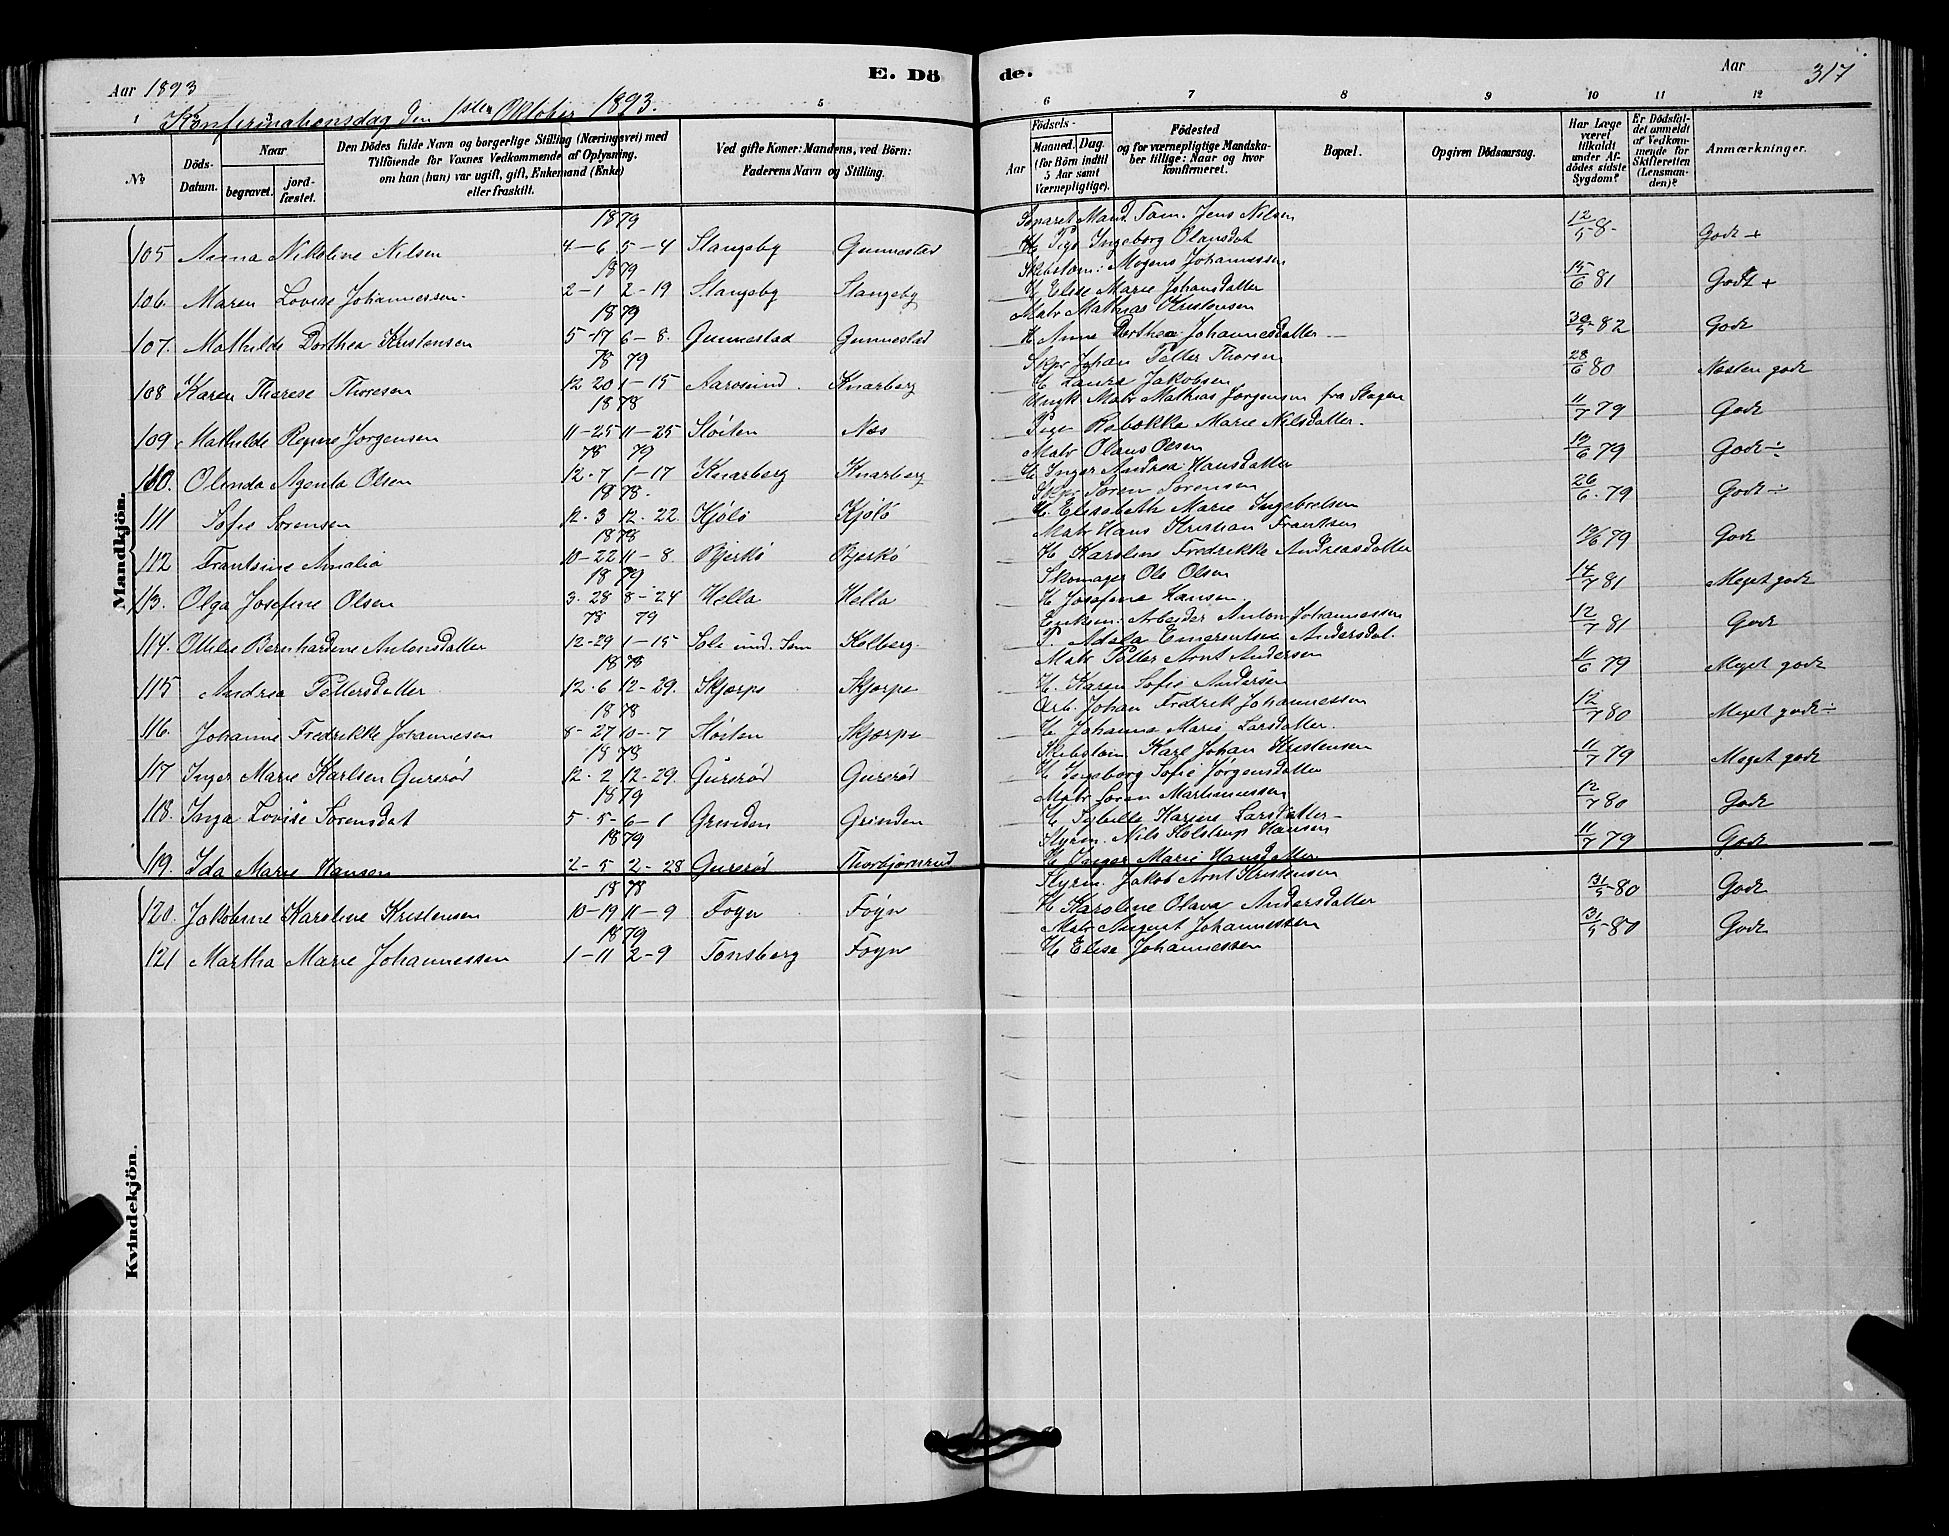 E. Dö de.
Aar 1893
Aar 317
Konfirmationsdag den 1ste Oktober 1893.
1 3 5 6 7 8 9 10 11 12
No
Döds-Datum.
Naar
begravet.
jordfæstet.
Den Dödes fulde Navn og borgerlige Stilling (Næringsvei) med
Tilföiende for Voxnes Vedkommende af Oplysning,
om han (hun) var ugift, gift, Enkemand (Enke)
eller fraskilt.
Ved gifte Koner: Mandens, ved Börn:
Faderens Navn og Stilling.
Födsels-
Aar
Maaned. Dag.
(for Börn indtil
5 Aar samt
Værnepligtige).
Födested
og for værnepligtige Mandskaber tillige: Naar og hvor
konfirmeret.
Bopæl.
Opgiven Dödsaarsag.
Har Læge
været
tilkaldt
under Afdödes sidste
Sygdom?
Er Dödsfaldet anmeldt
af Vedkommende for
Skifteretten
(Lensmanden)?
Anmærkninger.
Mandkjön.
1879 Separet Mand Tøm. Jens Nilsen
105 Anna Nikoline Nilsen 4-6 5-4 Slangsby Gunnestad Pige Ingeborg Olausdat 12/5 8- Godt +
1879 Skibstøm: Mogens Johannessen
106. Maren Lovise Johannessen. 2-1 2-19 Slangsby Slangsby H Elise Marie Johansdatter 15/6 81 Godt +
1879 Matr Mathias Kristensen
107. Mathilde Dorthea Kristensen 5-17 6-8. Gunnestad Gunnestad H Anne Dorthea Johannesdatter 30/5-82 Godt
78 79 Skpr Johan Petter Thorsen
108 Karen Therese Thoresen 12 20 1-15 Aarosund. Knarberg H Laura Jakobsen 28/6 80 Næsten godt
1878 Ungk. Matr Mathias Jørgensen fra Skagen
109 Mathilde Regine Jørgensen 11-25 11-25 Støiten Næs Pige Rebekke Marie Nilsdatter. 11/7 79 Godt
78 79 Matr Olaus Olsen
110. Olinda Agenta Olsen 12-7 1-17 Knarberg Knarberg H Inger Andrea Hansdatter 10/6 79 Godt ÷
1878. Skpr Soren Sorensen
111 Sofie Sorensen 12-3 12-22 Kjøló Kjøló H. Elisabeth Marie Ingebretsen 26/6-79 Godt ÷
1878 Matr Hans Kristian Frantsen
112 Frantsine Amalia 10-22 11-8. Bjerkó Bjerkó H Karoline Fredrikke Andreasdatter 10/6 79 Godt
1879 Skomager Ole Olsen
113. Olga Josefine Olsen 3-28 8-24 Hella Hella H Josefine Hansen. 14/7 81 Meget godt
78 79 Enkem. Arbeider Anton Johannessen
114. Ottilie Bernhardine Antonsdatter 12-29 1-15 Sole und. Sem Kolberg. P. Adala Emerentse Andersdat. 12/7 81 Godt
1878 Matr Petter Arnt Andersen
115 Andrea Pettersdatter. 12-6 12-29. Skjærpe Skjærpe H. Karen Sofie Andersen 11/6 79 Meget godt
1878 Arb. Johan Fredrik Johannessen
116. Johanne Fredrikke Johannesen 8-27 10-7 Støiten Skjærpe H Johanna Marie Larsdatter. 12/7 80 Meget godt ÷
1878 Skibstøm Karl Johan Kristensen
117 Inger Marie Karlsen Gurerød 12-2 12-29. Gurerød Gurerød H Ingeborg Sofie Jørgensdatter 11/7 79 Meget godt
1879 Matr Soren Martinussen
118. Inga Lovise Sorensdat 5-5-6-1 Grinden Grinden H Sybille Karine Larsdatter - 12/7 80 Godt
1879 Styrm. Nils Holstrup Hansen
119. Ida Marie Hansen 2-5 2-28 Gurerød Thorbjørnrud H Inger Marie Hansdatter 11/7 79 Godt
Kvindekjön.
1878 Styrm. Jakob Arnt Kristensen
120. Jakobine Karoline Kristensen 10-19 11-9 Foyn Föyn H Karoline Olava Andersdatter 31/5-80 Godt
1879 Matr August Johannessen
121 Martha Marie Johannessen 1-11 2-9 Tonsberg Föyn H Elise Johannessen 31/5-80 Godt